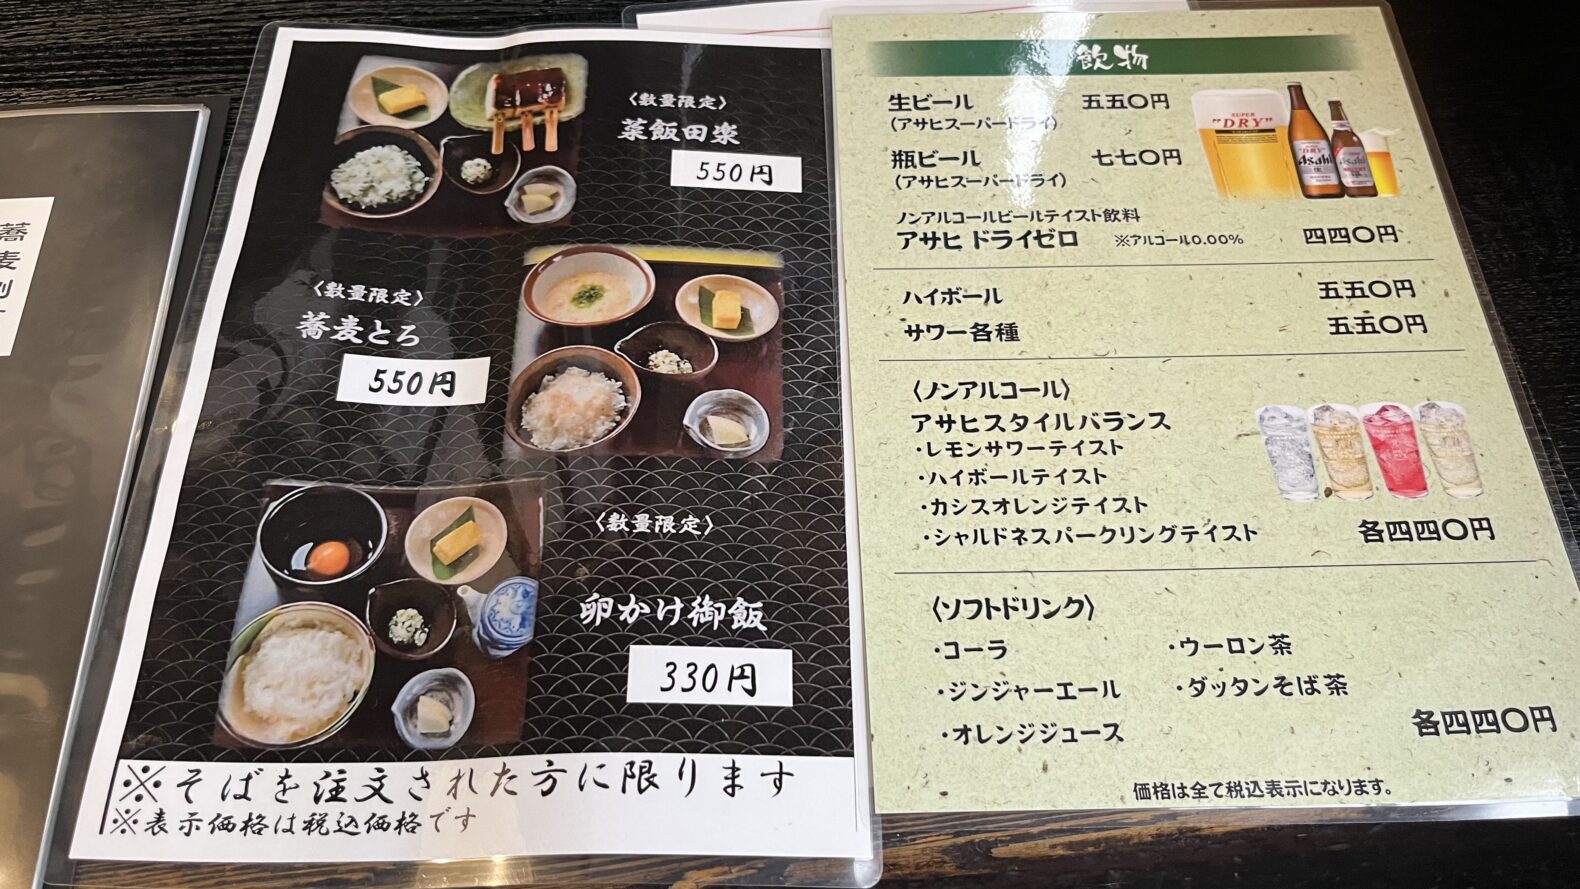 蕎麦
〈数量限定〉
菜飯田楽
550円
〈数量限定〉
蕎麦とろ
550円
〈数量限定〉
卵かけ御飯
330円
※そばを注文された方に限ります
※表示価格は税込価格です
飲物
生ビール 五五〇円
(アサヒスーパードライ)
瓶ビール 七七〇円
(アサヒスーパードライ)
ノンアルコールビールテイスト飲料
アサヒ ドライゼロ ※アルコール0.00% 四四〇円
ハイボール 五五〇円
サワー各種 五五〇円
〈ノンアルコール〉
アサヒスタイルバランス
・レモンサワーテイスト
・ハイボールテイスト
・カシスオレンジテイスト
・シャルドネスパークリングテイスト 各四四〇円
〈ソフトドリンク〉
・コーラ ・ウーロン茶
・ジンジャーエール ・ダッタンそば茶
・オレンジジュース
各四四〇円
価格は全て税込表示になります。
SUPER
"DRY"
Asahi
Asahi